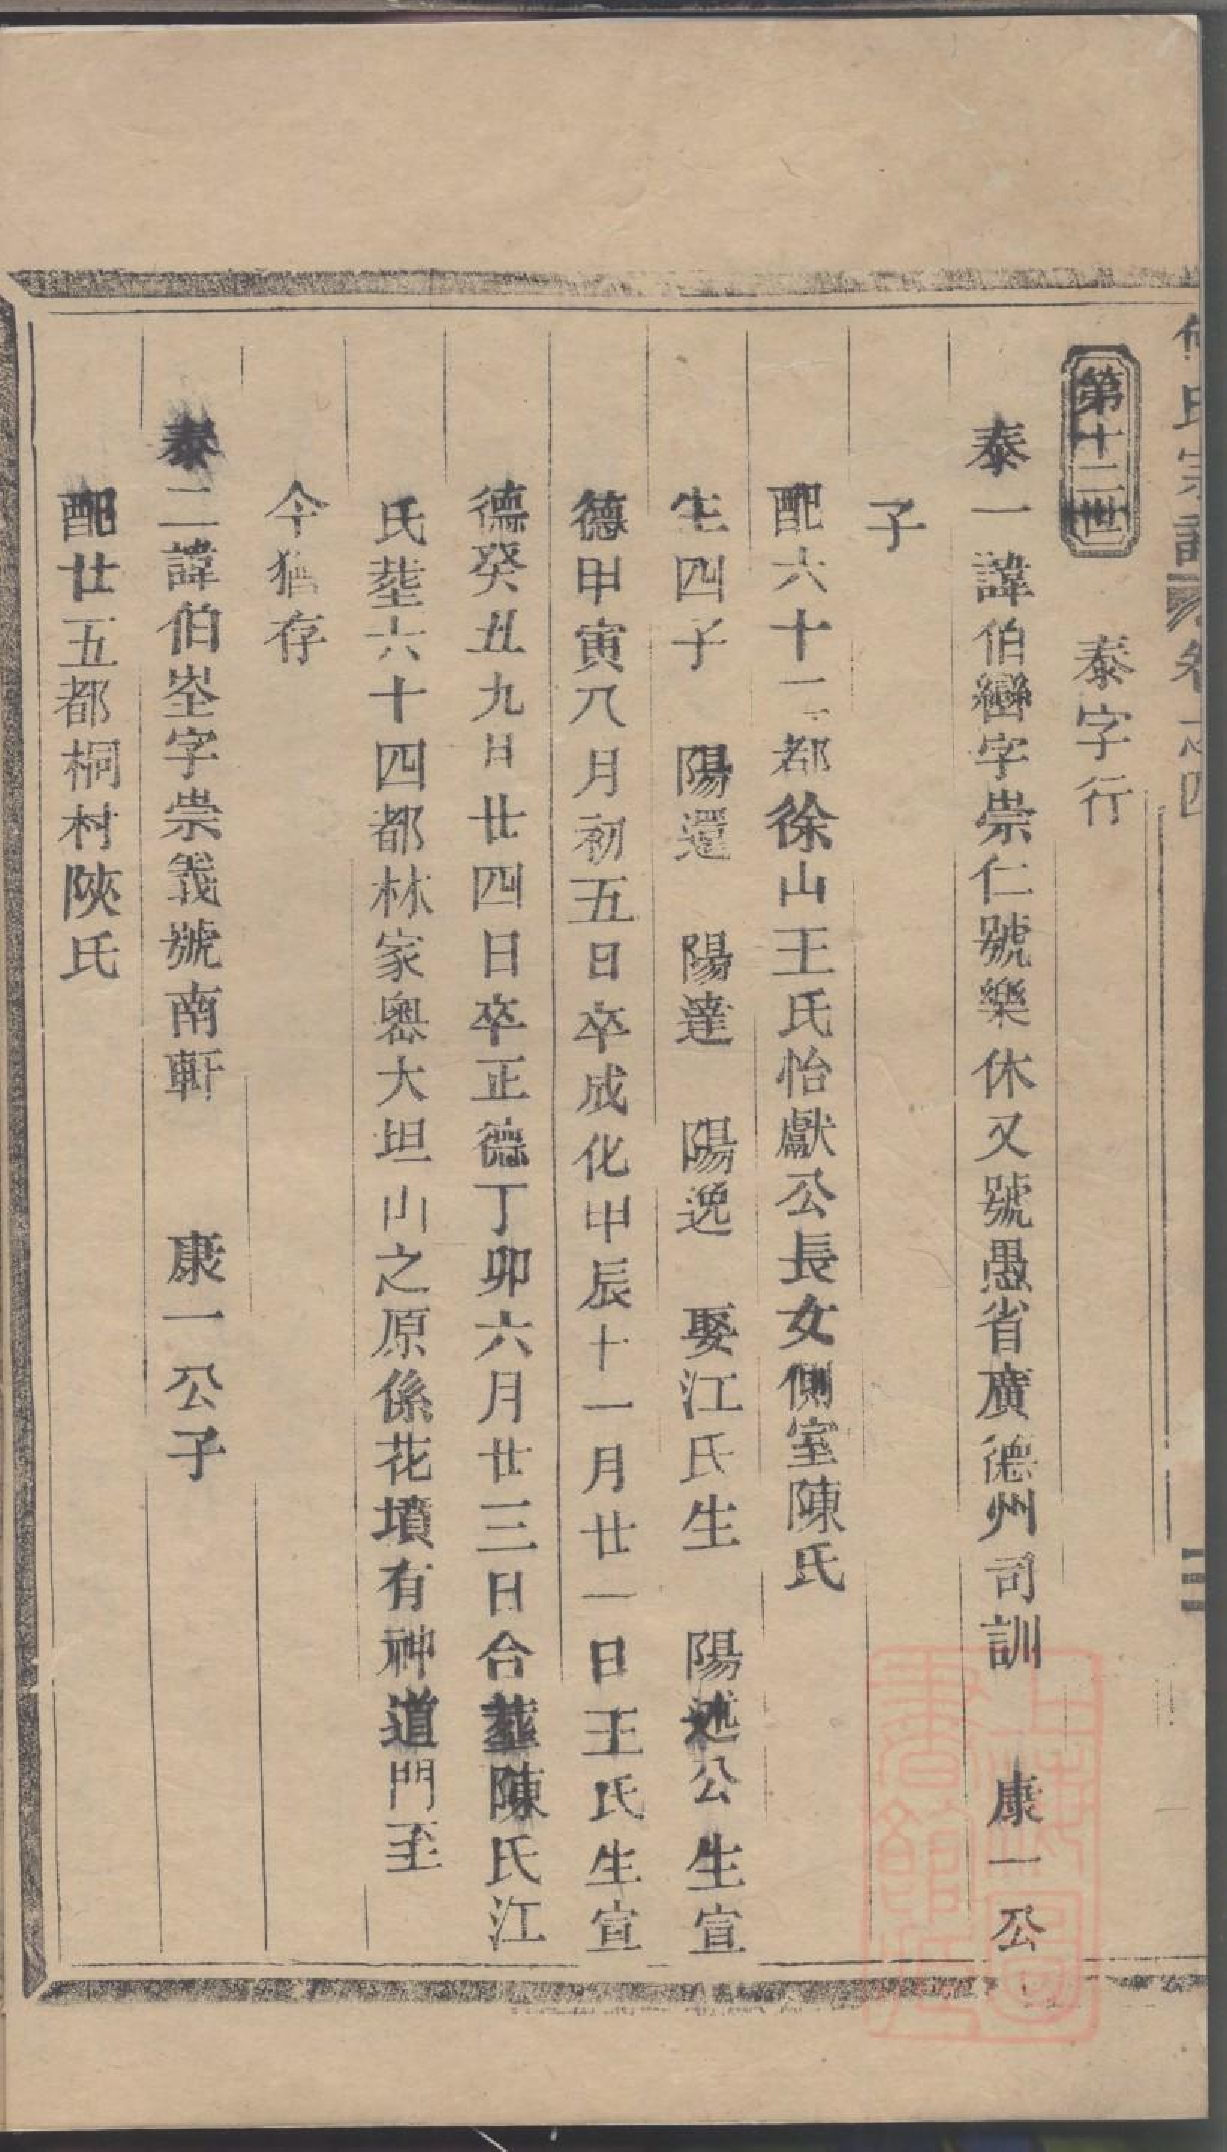 氏宗譜 卷之四
第十二世 泰字行
泰一諱伯巒字崇仁號樂休又號愚省廣德州司訓 康一公
子
配六十一都徐山王氏怡獻公長女側室陳氏
生四子 陽還 陽達 陽逸 娶江氏生 陽述公生宣
德甲寅八月初五日卒成化甲辰十一月廿一日王氏生宣
德癸丑九日廿四日卒正德丁卯六月廿三日合塟陳氏江
氏塟六十四都林家嶴大坦山之原係花墳有神道門至
今猶存
泰二諱伯峑字崇義號南軒 康一公子
配廿五都桐村陝氏
上海圖書館藏